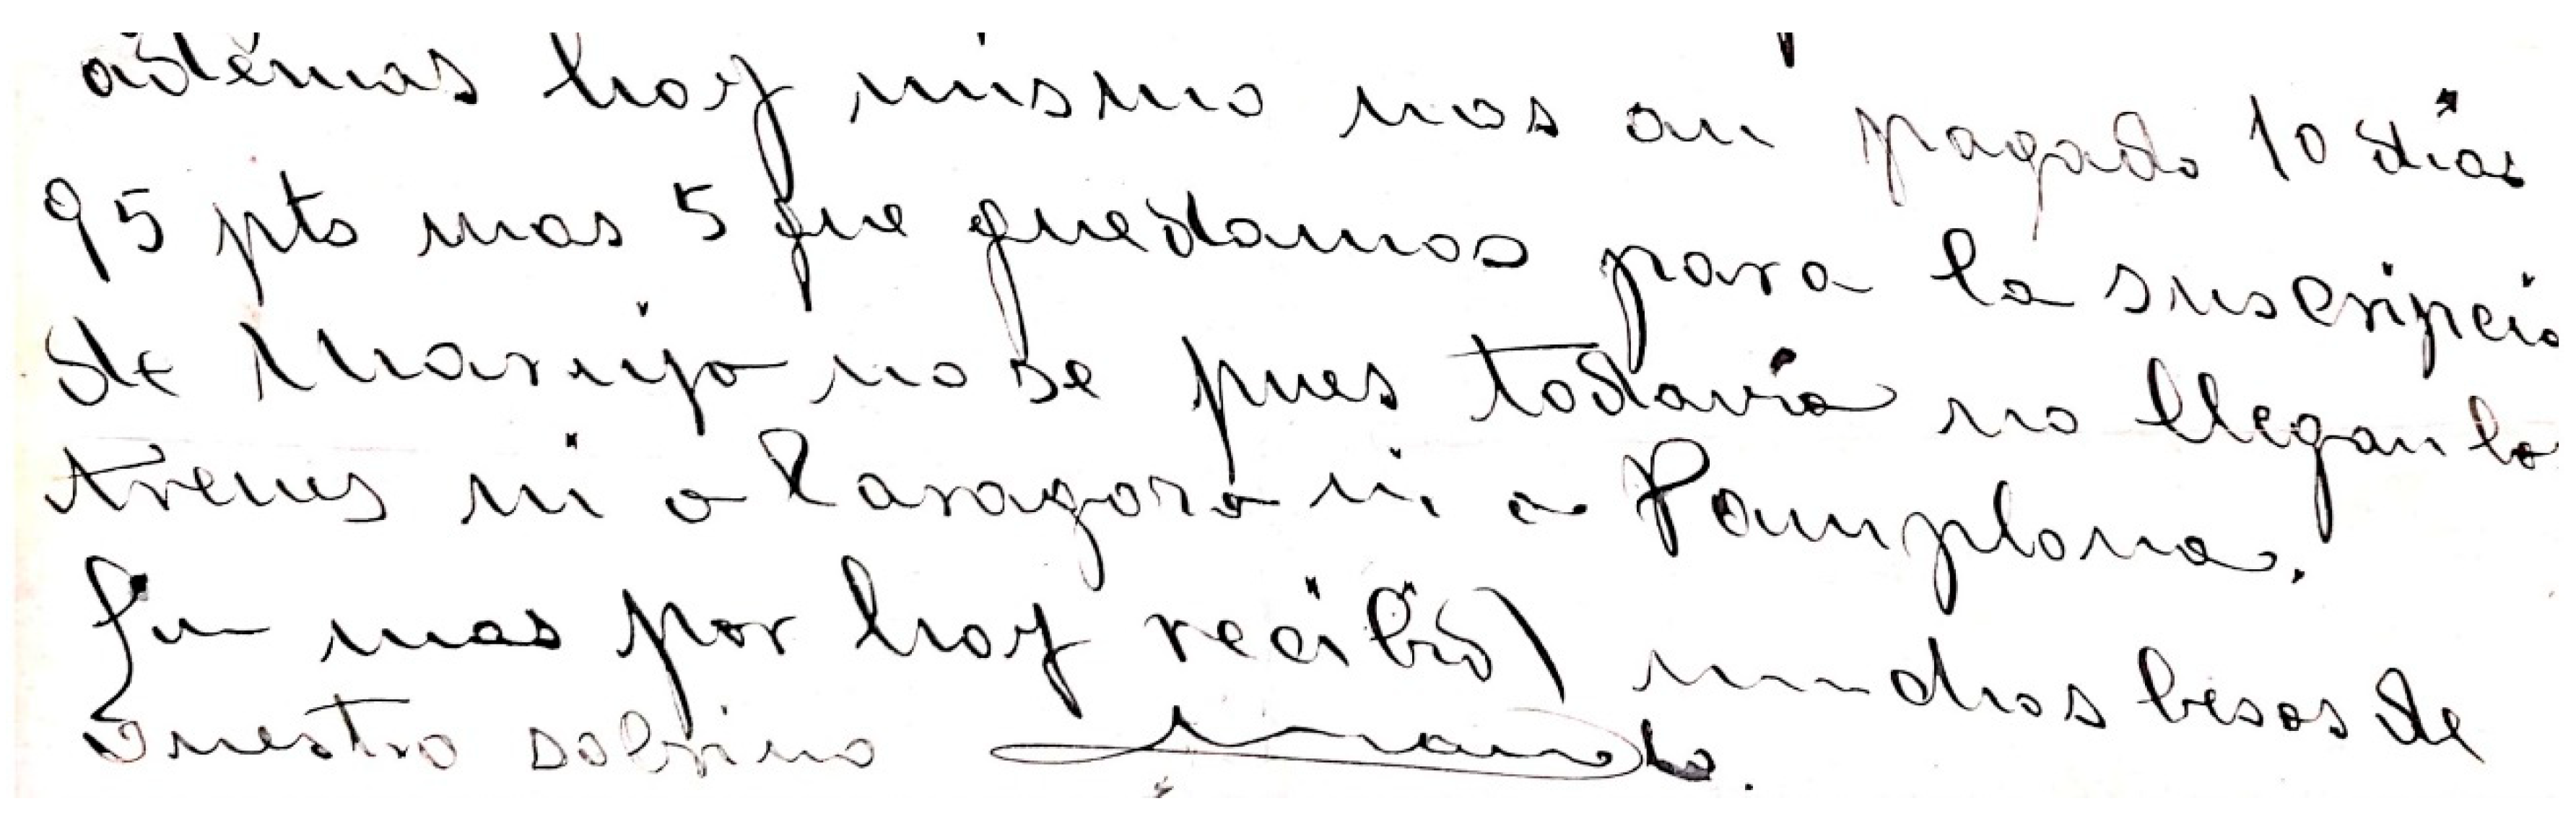 ademas hoy mismo nos an pagado 10 dias
95 pts mas 5 que quedamos para la suscripcio
de Maruja no se pues todavia no llegan lo
trenes ni a Zaragoza ni a Pamplona.
Sin mas por hoy recibid muchos besos de
vuestro sobrino